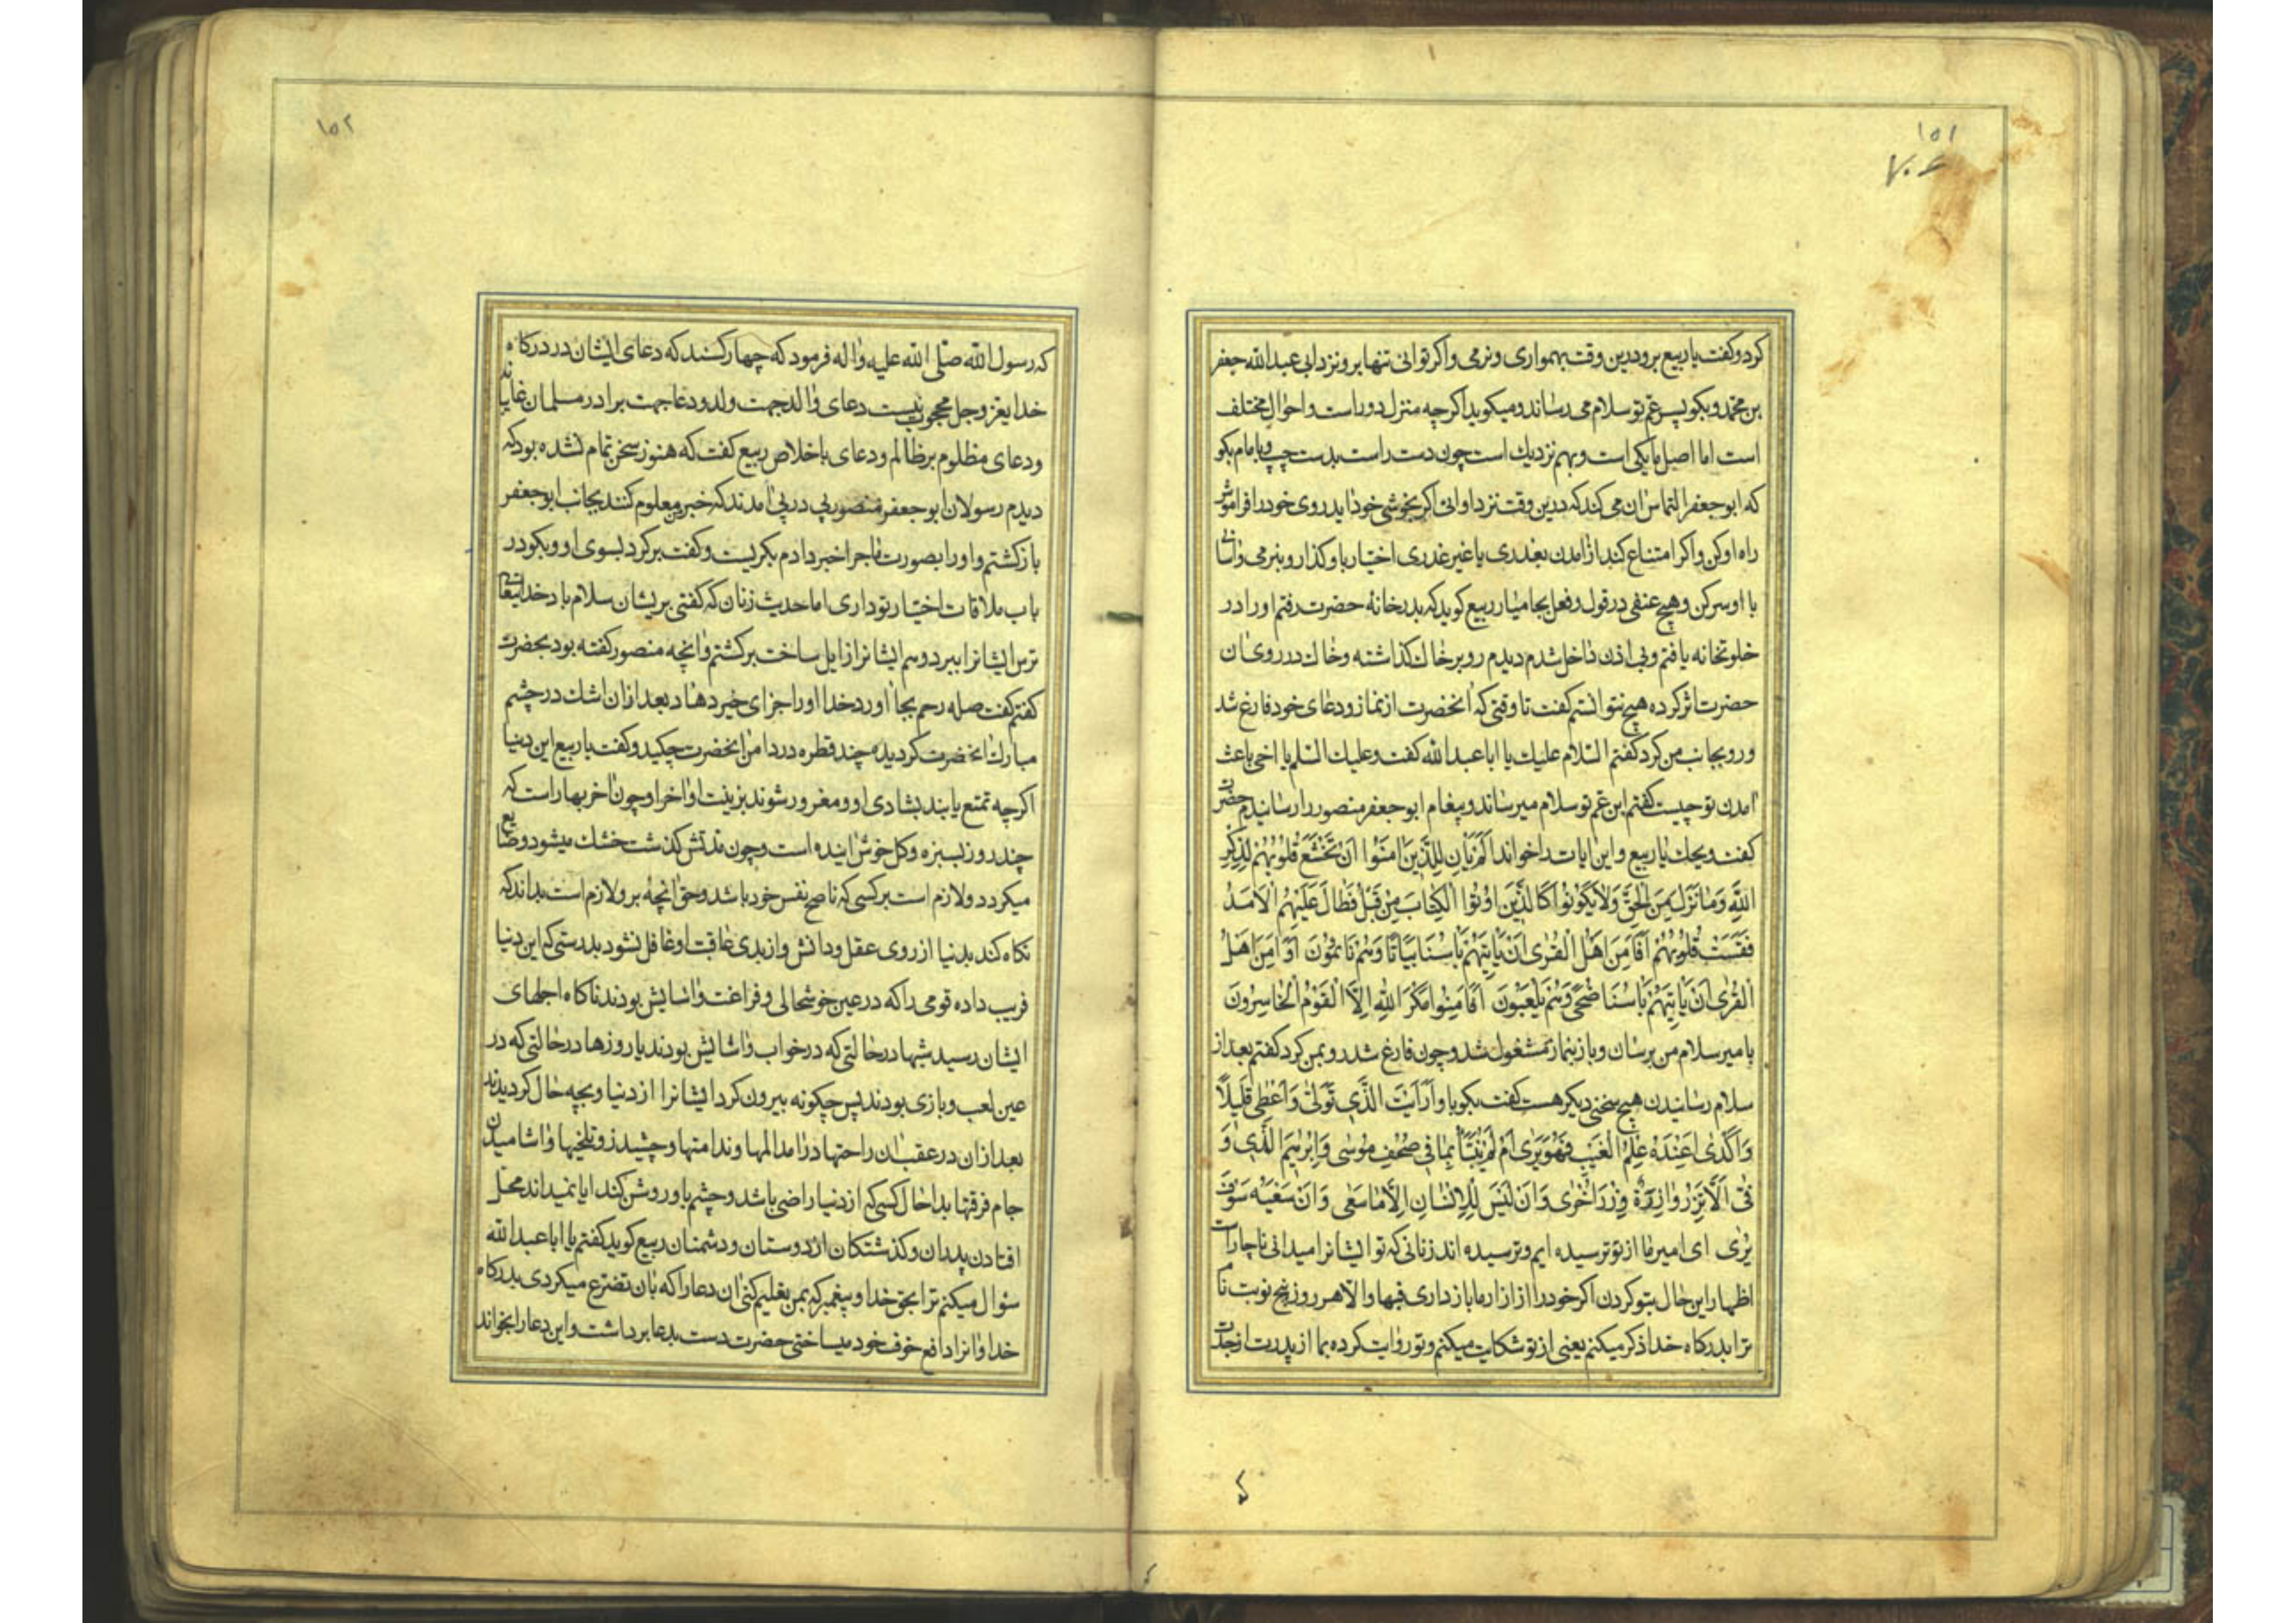 ١٥١
كرد و كفت يا ربيع برو درين وقت بهموارى و نرمى و اكر توانى تنها برو نزد ابى عبد الله جعفر
بن محمد و بكو پسر عم تو سلام مى رساند و ميكويد اكر چه منزل دور است و احوال مختلف
است اما اصل ما يكى است و بهم نزديك است چون دست راست بدست چپ و با امام بكو
كه ابو جعفر التماس ان مى كند كه درين وقت نزد او ائى اكر بخوشى خود ايد روى خود را فراموش
راه او كن و اكر امتناع كند از امدن بعذرى يا غير عذرى اختيار با او كذار و بنرمى و اسانى
با او سر كن و هيچ عنفى در قول و فعل بجا ميار ربيع كويد كه بدر خانه حضرت رفتم او را در
خلوتخانه يافتم و بى اذن داخل شدم ديدم رو بر خاك كذاشته و خاك در روى ان
حضرت اثر كرده هيچ نتوانستم كفت تا وقتى كه انحضرت از نماز و دعاى خود فارغ شد
و رو بجانب من كرد كفتم السلام عليك يا ابا عبد الله كفت و عليك السلم يا اخى باعث
امدن تو چيست كفتم ابن عم تو سلام ميرساند و پيغام ابو جعفر منصور را رسانيدم حضرت
كفت ويحك يا ربيع و اين ايات را خواند اَلَمْ يَأنِ لِلَّذينَ امَنُوا اَنْ تَخْشَعَ قُلُوبُهُمْ لِذِكْرِ
اللهِ وَمَا نَزَلَ مِنَ الْحَقِّ وَلا يَكُونُوا كَالَّذينَ اُوتُوا الْكِتابَ مِنْ قَبْلُ فَطالَ عَلَيْهِمُ الاَمَدُ
فَقَسَتْ قُلُوبُهُمْ اَفَاَمِنَ اَهْلُ الْقُرى اَنْ يَأتِيَهُمْ بَأسُنا بَياتًا وَهُمْ نائِمُونَ اَوَ اَمِنَ اَهْلُ
الْقُرى اَنْ يَأتِيَهُمْ بَأسُنا ضُحًى وَهُمْ يَلْعَبُونَ اَفَاَمِنُوا مَكْرَ اللهِ اِلاَّ الْقَوْمُ الْخاسِرُونَ
بامير سلام من برسان و باز بنماز مشغول شد و چون فارغ شد رو بمن كرد كفتم بعد از
سلام رسانيدن هيچ سخنى ديكر هست كفت بكو باو اَرَاَيْتَ الَّذى تَوَلّى وَاَعْطى قَليلاً
وَاَكْدى اَعِنْدَهُ عِلْمُ الْغَيْبِ فَهُوَ يَرى اَمْ لَمْ يُنَبَّأْ بِما فى صُحُفِ مُوسى وَاِبْرهيمَ الَّذى وَ
فّى اَلاَّ تَزِرُ وازِرَةٌ وِزْرَ اُخْرى وَاَنْ لَيْسَ لِلاِنْسانِ اِلاَّ ما سَعى وَاَنَّ سَعْيَهُ سَوْفَ
يُرى اى امير ما از تو ترسيده ايم و ترسيده اند زنانى كه تو ايشانرا ميدانى ناچار است
اظهار اين حال بتو كردن اكر خود را از ازار ما باز دارى فبها و الا هر روز پنج نوبت نا
ترا بدركاه خدا ذكر ميكنم يعنى از تو شكايت ميكنم و تو روايت كرده بما از پدرت از جدت
١٥٢
كه رسول الله صلى الله عليه و اله فرمود كه چهار كسند كه دعاى ايشان در دركاه
خداى عز و جل محجوب نيست دعاى والد جهت ولد و دعا جهت برادر مسلمان غايبانه
و دعاى مظلوم بر ظالم و دعاى با خلاص ربيع كفت كه هنوز سخن تمام نشده بود كه
ديدم رسولان ابو جعفر منصور پى در پى امدند كه خبر من معلوم كنند بجانب ابو جعفر
باز كشتم و او را بصورت ماجرا خبر دادم بكريست و كفت بر كرد بسوى او و بكو در
باب ملاقات اختيار تو دارى اما حديث زنان كه كفتى بر يشان سلام باد خداى تعالى
ترس ايشانرا ببرد و هم ايشانرا زايل ساخت بر كشتم و انچه منصور كفته بود بحضرت
كفتم كفت صله رحم بجا اورد خدا او را جزاى خير دهاد بعد از ان اشك در چشم
مبارك انحضرت كرديد چند قطره در دامن انحضرت چكيد و كفت يا ربيع اين دنيا
اكر چه تمتع يابند بشادى او و مغرور شوند بزينت او اخر او چون اخر بهار است كه
چند روز بسبزه و كل خوش اينده است و چون مدتش كذشت خشك ميشود و ضايع
ميكردد و لازم است بر كسى كه ناصح نفس خود باشد و حق انچه بر و لازم است بداند كه
نكاه كند بدنيا از روى عقل و دانش و از بدى عاقبت او غافل نشود بدرستى كه اين دنيا
فريب داده قومى را كه در عين خوشحالى و فراغت و اسايش بودند ناكاه اجلهاى
ايشان رسيد شبها در حالتى كه در خواب و اسايش بودند يا روزها در حالتى كه در
عين لعب و بازى بودند پس چكونه بيرون كرد ايشانرا از دنيا و بچه حال كرديدند
بعد از ان در عقب ان راحتها در امد المها و ندامتها و چشيدن و تلخيها و اشاميدن
جام فرقتها بدا حال كسى كه از دنيا راضى باشد و چشم باو روشن كند ايا نميداند محل
افتادن پدران و كذشتكان از دوستان و دشمنان ربيع كويد كفتم يا ابا عبد الله
سؤال ميكنم ترا بحق خدا و پيغمبر كه بمن تعليم كنى ان دعا را كه بان تضرع ميكردى بدركاه
خدا و انرا دافع خوف خود ميساختى حضرت دست بدعا برداشت و اين دعا را بخواند